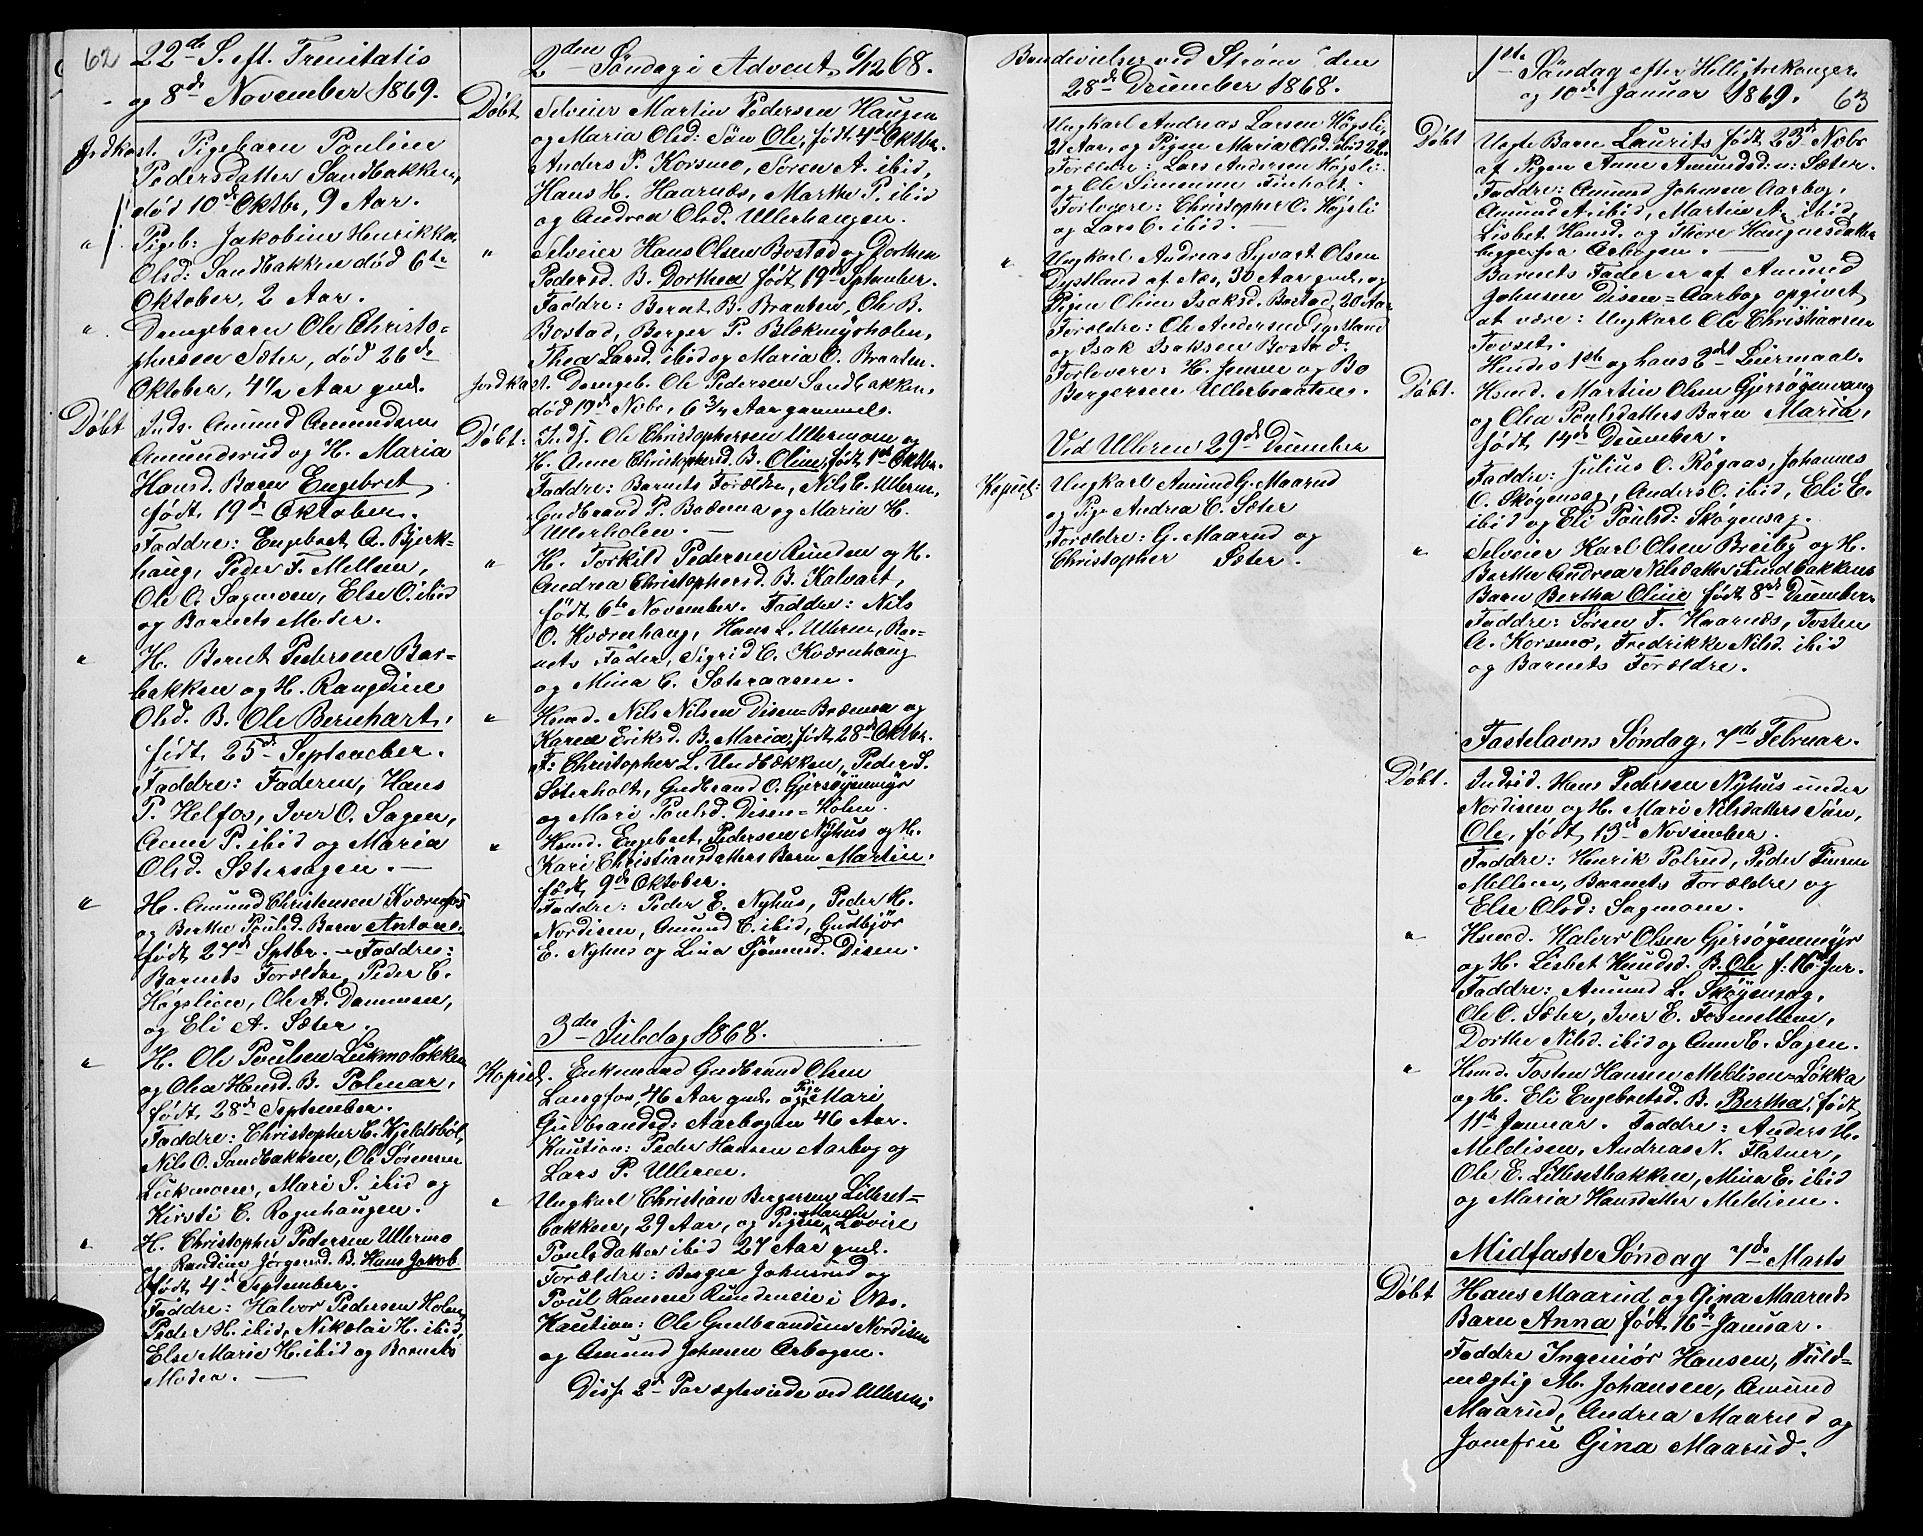 62
22de S. eft. Trenitatis
og 8de November 1869.
Jordkast. Pigebarn Pauline
Pedersdatter Sandbakken,
død 10de Oktbr, 9 Aar.
" Pigeb: Jakobine Henrikka
Olsd: Sandbakken død 6te
Oktober, 2 Aar.
" Drengebarn Ole Christo-
phersen Sæter, død 26de
Oktober, 4 1/2 Aar gml.
Døbt Inds. Amund Amundsen
Amundsrud og H. Maria
Hansd. Barn Engebret,
født 19de Oktober.
Faddre: Engebret A. Bjerk-
haug, Peder F. Mellem,
Ole O. Sagmoen, Else O. ibid
og Barnets Moder.
" H. Bernt Pedersen Bar-
bakken og H. Rangdine
Olsd. B. Ole Bernhart,
født 25de September.
Faddre: Faderen, Hans
P. Helfos, Iver O. Sagen,
Anne P. ibid og Maria
Olsd. Sætersagen. —
" H. Amund Christensen Kværnfos
og Berthe Poulsd. Barn Antone.
født 27de Sptbr. – Faddre:
Barnets Forældre, Peder C.
Høgslien, Ole A. Dammen,
og Eli A. Sæter.
" H. Ole Poulsen Lukmoløkken
og Olea Hansd. B. Polmar,
født 28de September.
Faddre: Christopher C. Kjeldsbøl,
Nils O. Sandbakken, Ole Sørensen
Lukmoen, Mari S. ibid og
Kirsti C. Rognhaugen.
" H. Christopher Pedersen Ullermo
og Randine Jørgensd. B. Hans Jakob
født 4de September.
Faddre: Halvor Pedersen Holen,
Peder H. ibid, Nikolai H. ibid,
Else Marie H. ibid og Barnets
Moder. —
2den Søndag i Advent 6/12 68.
Døbt Selveier Martin Pedersen Haugen
og Maria Olsd: Søn Ole, født 4de Oktbr.
Anders P. Korsmo, Søren A. ibid,
Hans H. Haarnæs, Marthe P. ibid
og Andrea Olsd. Ullerhaugen.
" Selveier Hans Olsen Bostad og Dorthea
Pedersd. B. Dorthea født 19de September.
Faddre: Bernt B. Braaten, Ole B.
Bostad, Berger P. Blekmyrholen,
Thea Larsd. ibid og Maria O. Braaten.
Jordkast. Drengeb. Ole Pedersen Sandbakken,
død 19de Novbr, 6 3/4 Aar gammel.
Døbt: Indj. Ole Christophersen Ullermoen og
H. Anne Christophersd. B. Oline, født 1ste Oktbr.
Faddre: Barnets Forældre, Nils C. Ulleren,
Gudbrand P. Brænna og Maria H.
Ullerholen. —
" H. Torkild Pedersen Runden og H.
Andrea Christophersd. B. Kalvart,
født 6te November. Faddre: Nils
O. Kværnhaug, Hans L. Ulleren, Bar-
nets Fader, Sigrid C. Kværnhaug
og Mina C. Sæteraaren.
" Hsmd. Nils Nilsen Disen-Brænna og
Karen Eriksd. B. Maria, født 28de Oktbr.
F: Christopher L. Undbækken, Peder S.
Sæterholt, Gudbrand O. Gjersøyenmyr
og Mari Poulsd. Disen-Holen.
" Hsmd. Engebret Pedersen Nyhus og H.
Kari Christiansdatters Barn Martin.
født 9de Oktober.
Faddre: Peder E. Nyhus, Peder H.
Nordisen, Amund C. ibid, Gudbjør
E. Nyhus og Lina Sjømansd. Disen.
3die Juledag 1868.
Kopul. Enkemand Gudbrand Olsen
Langfos, 46 Aar gml. og Pige Mari
Gudbrandsd: Aarbogen 46 Aar.
Kaution: Peder Hansen Aarbog og
Lars P. Ulleren.
" Ungkarl Christian Bergersen Lilleset-
bakken, 29 Aar, og Pigen Maren Lovise
Poulsdatter ibid 27 Aar gml.
Forældre: Berger Johnsrud og
Poul Hansen Rundeneie i Næs.
Kaution: Ole Gudbrandsen Nordisen
og Amund Johnsen Arbogen.
Disse 2de Par ægteviede ved Ulleren
Brudevielser ved Strøm den
28de December 1868.
Ungkarl Andreas Larsen Høgsli,
21 Aar, og Pigen Maria Olsd. Lois 22.
Forældre: Lars Andersen Høgsli
og Ole Simensen Finholt.
Forlovere: Christopher O. Høgsli
og Lars C. ibid. —
" Ungkarl Andreas Syvart Olsen
Dystland af Næs, 30 Aar gml. og
Pigen Oline Isaksd. Bostad, 20 Aar
Forældre: Ole Andersen Dystland
og Isak Isaksen Bostad.
Forlovere: H. Jensen og Bo
Bergersen Ullerbraaten.
Ved Ulleren 29de December
Kopul: Ungkarl Amund G. Maarud
og Pige Andrea C. Sæter
Forældre: G. Maarud og
Christopher Sæter.
1ste Søndag efter Helligtrekonger
og 10de Januar 1869. 63
Døbt Uægte Barn Laurits født 23de Novbr
af Pigen Anne Amundsd. n. Sæter.
Faddre: Amund Johnsen Aarbog,
Amund A. ibid, Martin A. ibid,
Lisbet Hansd. og Thore Haagnesdatter
begge fra Arbogen. —
Barnets Fader er af Amund
Johnsen Disen-Aarbog opgivet
at være: Ungkarl Ole Christiansen
Tovset.
Hendes 1ste og hans 2det Leiermaal.
Døbt. Hsmd. Martin Olsen Gjersøyenvang
og Olea Poulsdatters Barn Maria,
født 14de December.
Faddre: Julius O. Røgaas, Johannes
O. Skøyensag, Anders O. ibid, Eli E.
ibid og Eli Poulsd: Skøyensag.
" Selveier Karl Olsen Breiby og H.
Berthe Andrea Nilsdatter Sundbakkens
Barn Bertha Oline født 8de December.
Faddre: Sørsen F. Haarnæs, Tosten
A. Korsmo, Fredrikke Nilsd. ibid
og Barnets Forældre.
Fastelavns Søndag, 7de Februar.
Døbt. Indsid. Hans Pedersen Nyhus under
Nordisen og H. Mari Nilsdatters Søn,
Ole, født 13de November.
Faddre: Henrik Polrud, Peder Finsen
Mellem, Barnets Forældre og
Else Olsd: Sagmoen.
" Hsmd. Halvor Olsen Gjersøyenmyr
og H. Lisbet Knudsd. B. Ole f: 16de Jnr.
Faddre: Amund L. Skøyensag,
Ole O. Sæter, Iver E. Fosmellem,
Dorthe Nilsd. ibid og Anne C. Sagen.
" Hsmd. Tosten Hansen Meldisen-Løkka
og H. Eli Engebretsd. B. Bertha, født
11te Januar. Faddre: Anders H.
Meldisen, Andreas N. Flatner,
Ole E. Lillesetbakken, Mina E. ibid
og Maria Hansdatter Meldisen.
Midfaste Søndag 7de Marts
Døbt Hans Maarud og Gina Maaruds
Barn Anna født 16de Januar.
Faddre Ingeniør Hansen, Fuld-
mægtig M. Johansen, Amund
Maarud, Andrea Maarud og
Jomfru Gina Maarud.